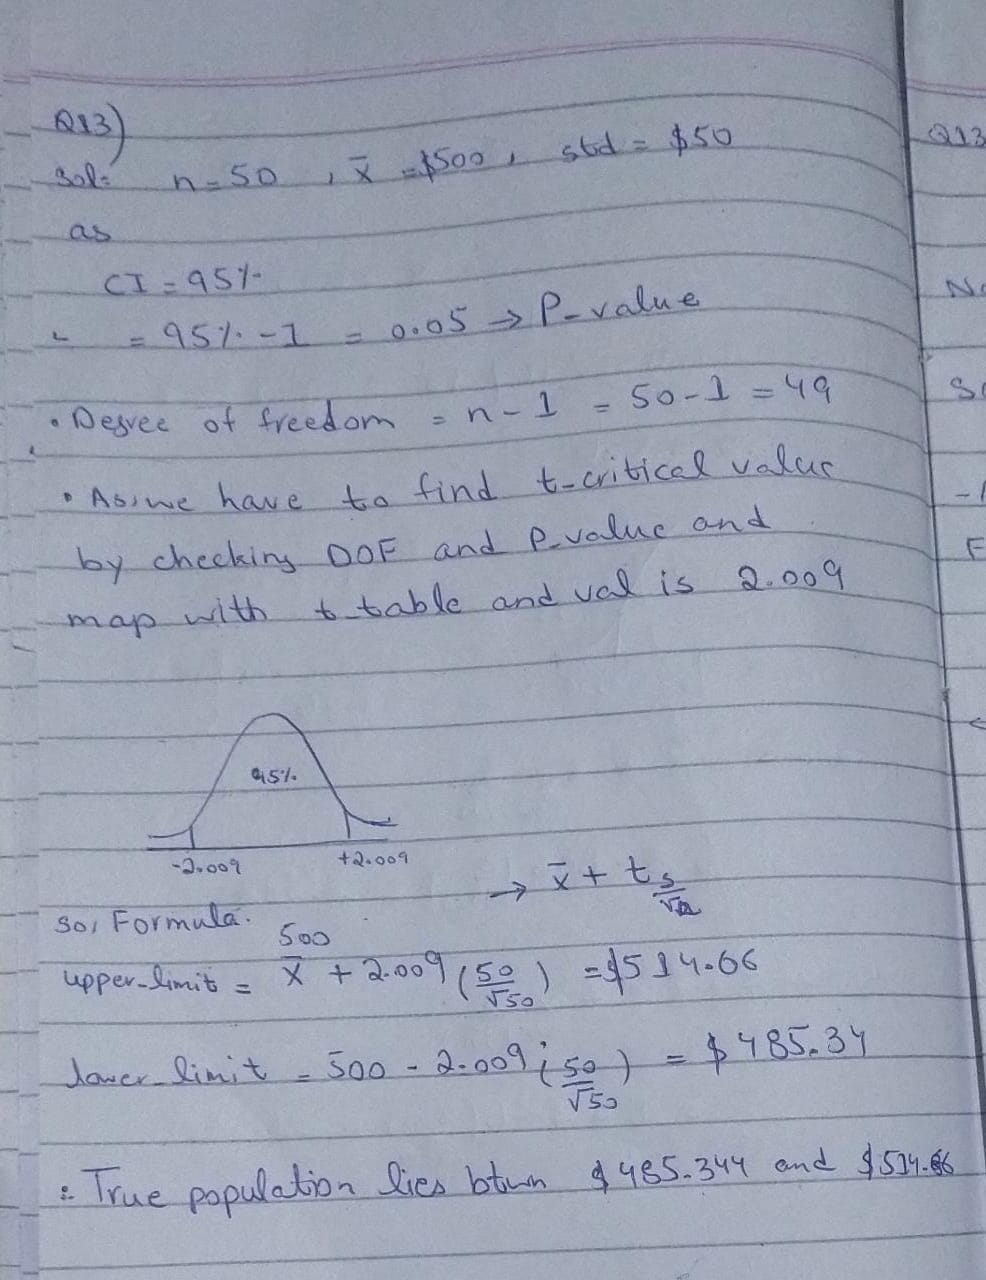 Q13)
Sol= n=50 , x̄ =$500 , std = $50
as
CI = 95%
= 95% - 1 = 0.05 → P-value
• Degree of freedom = n-1 = 50-1 = 49
• As, we have to find t-critical value
by checking DOF and P-value and
map with t-table and val is 2.009
95%
-2.009 +2.009
→ x̄ + t s/√n
so, Formula.
500
upper-limit = x̄ + 2.009 (50/√50) = $514.66
lower-limit = 500 - 2.009 (50/√50) = $485.34
∴ True population lies btwn $485.344 and $514.66
Q13
-1
F